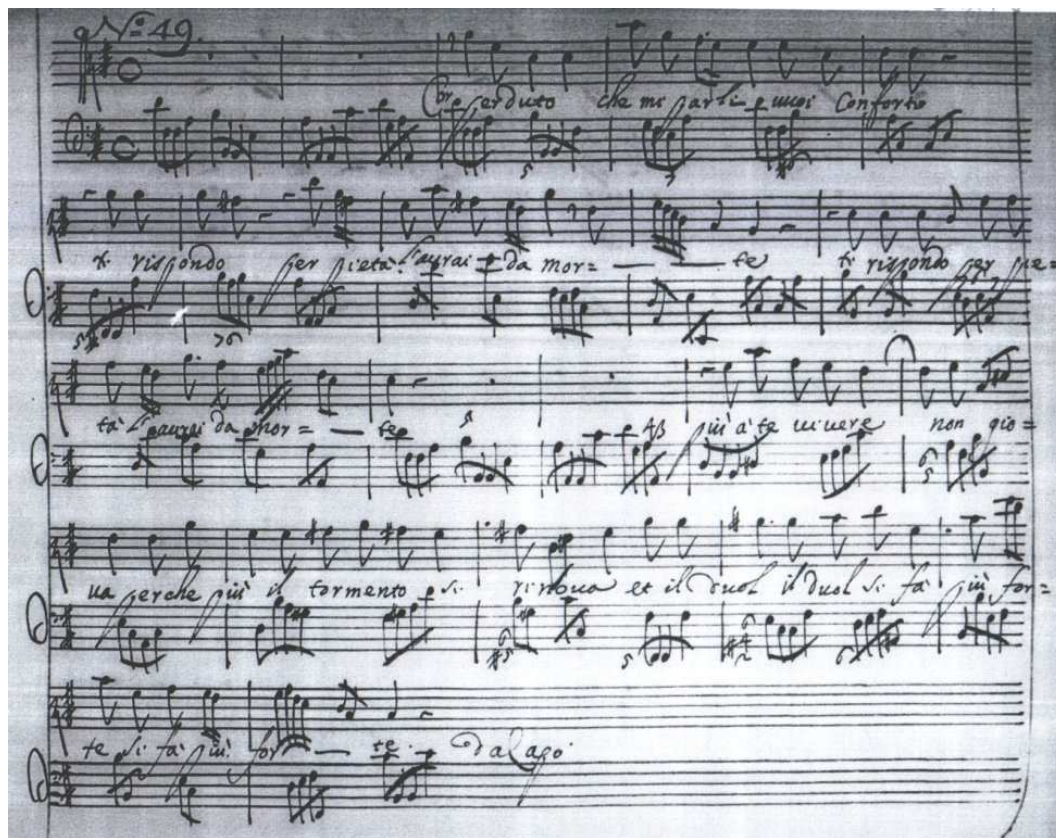 No: 49.
Cor perduto che mi parli e vuoi Conforto
ti rispondo per pietà l'aurai da mor= te ti rispondo per pie=
tà l'aurai da mor= te più à te vivere non gio=
va perche più il tormento si rinova et il duol il duol si fà più for=
te si fà più for te. Dal Capo